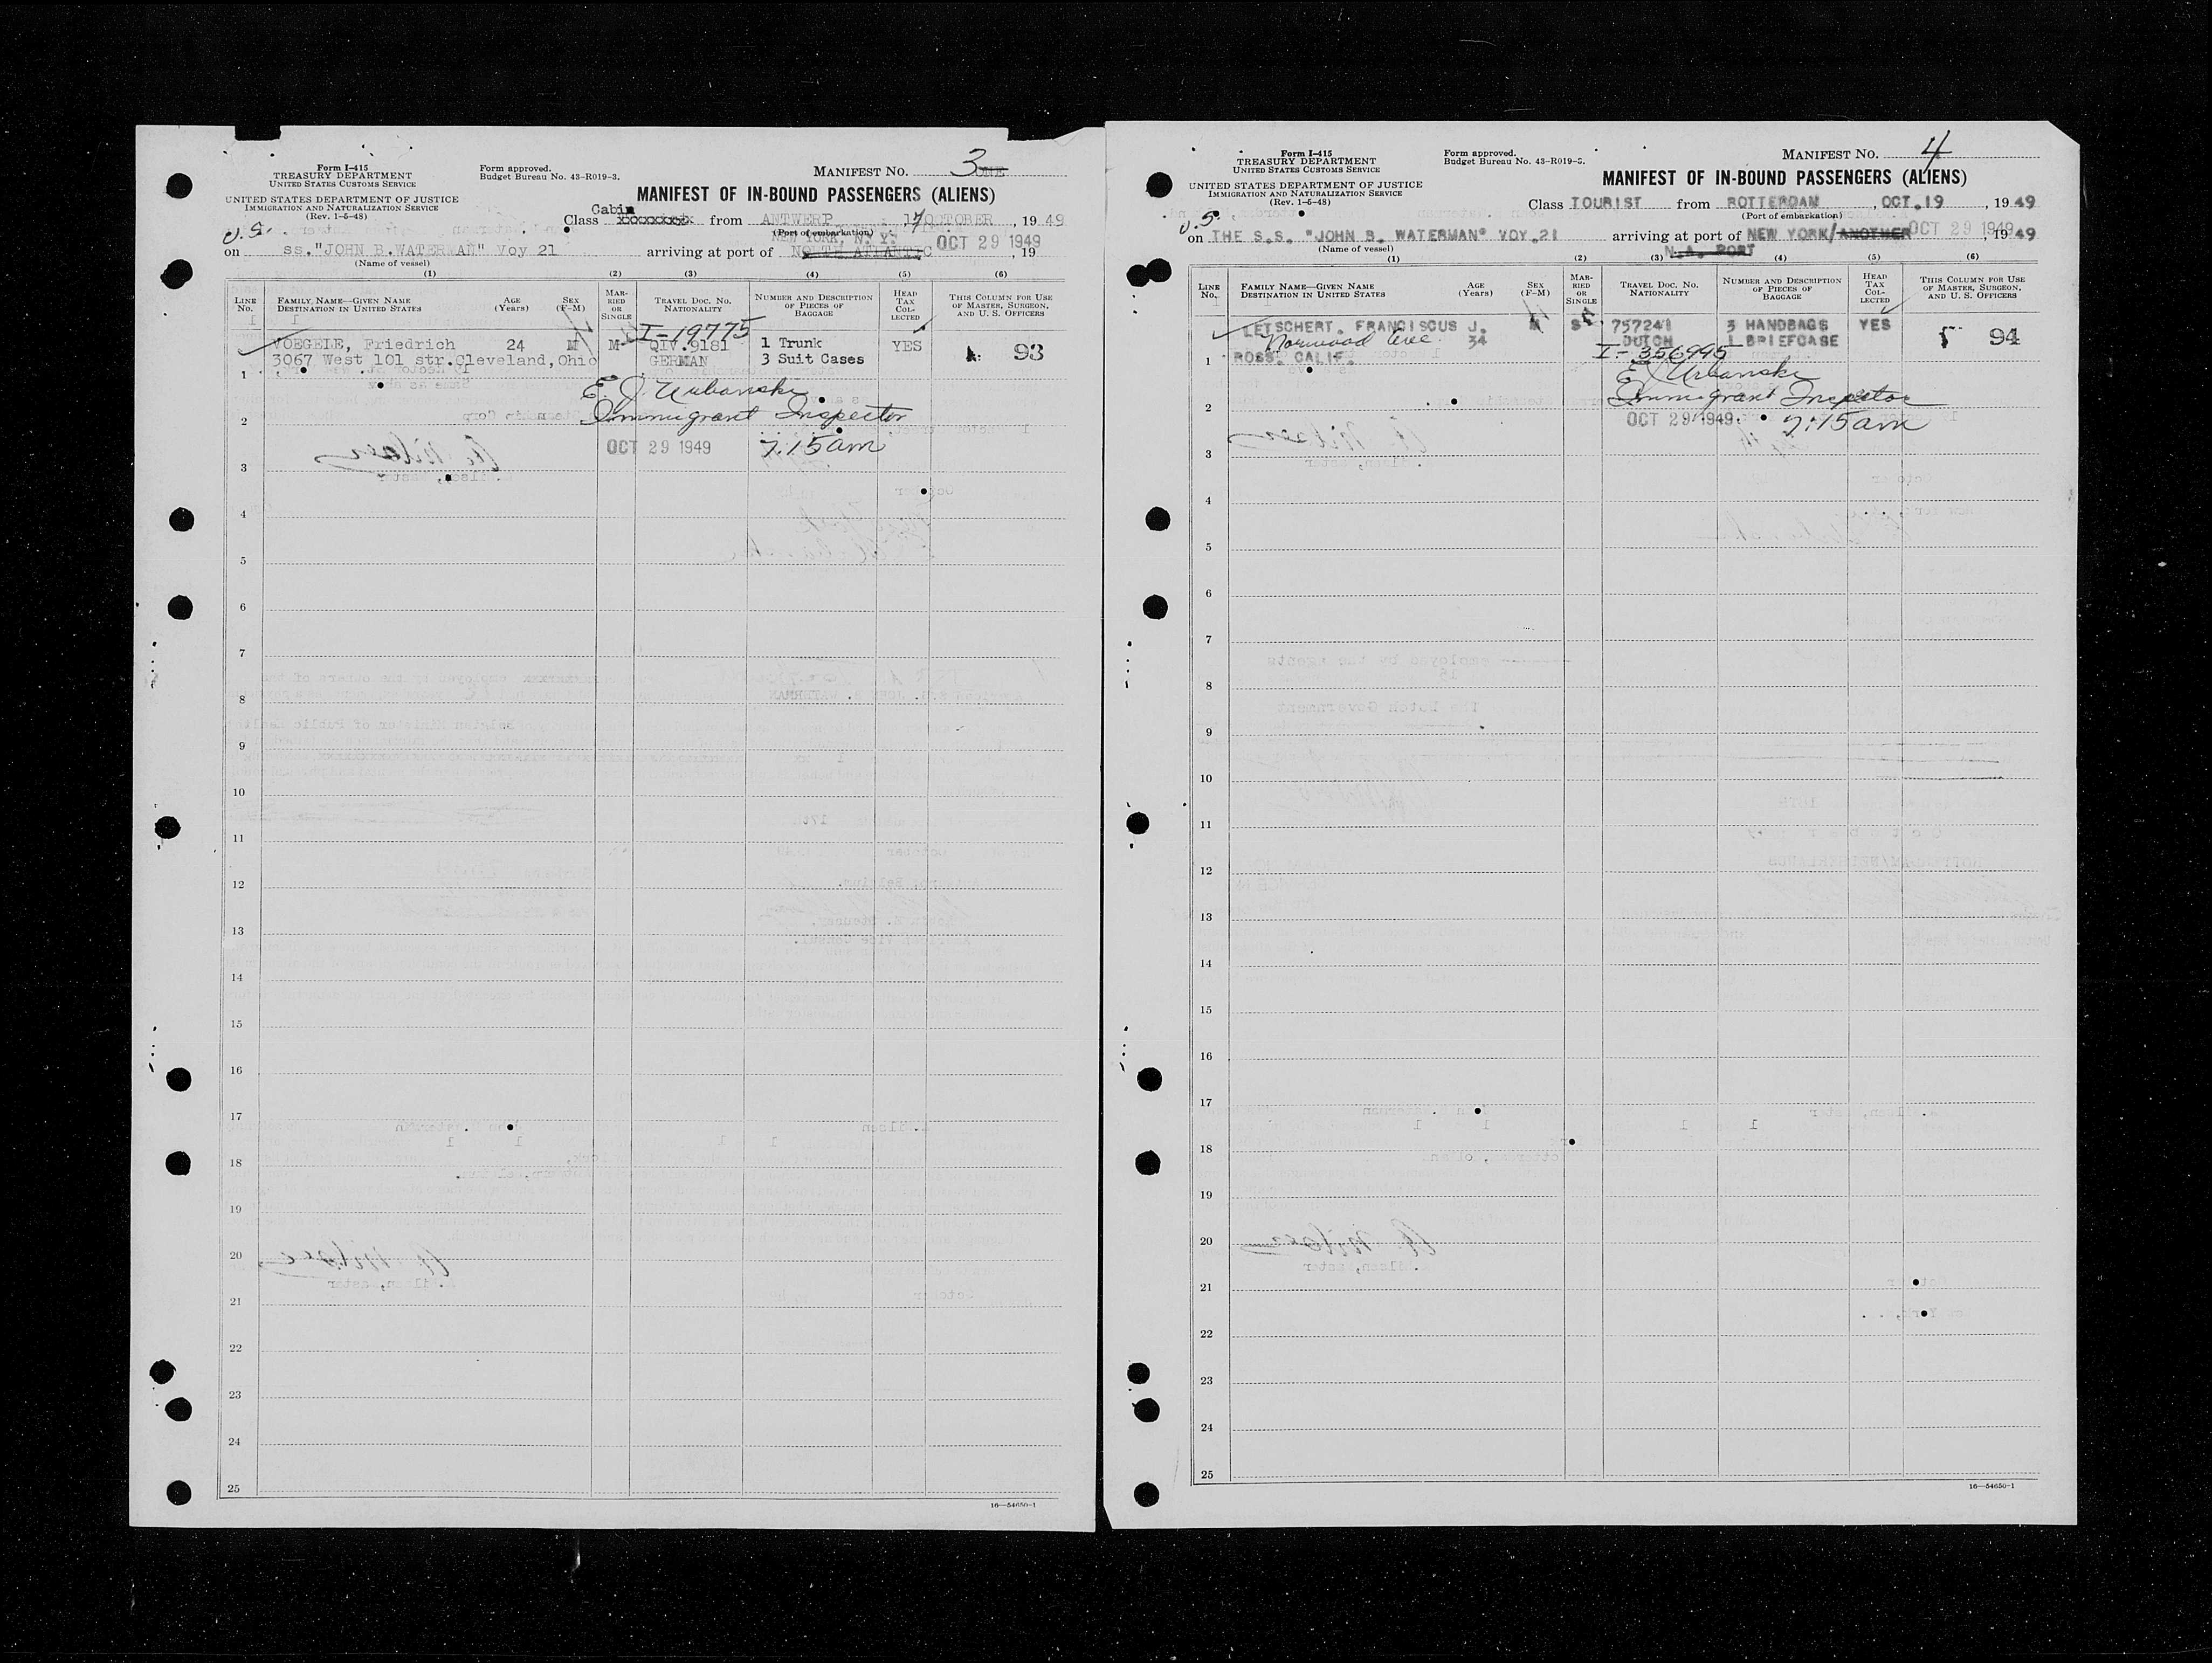 Form I-415
TREASURY DEPARTMENT
UNITED STATES CUSTOMS SERVICE
UNITED STATES DEPARTMENT OF JUSTICE
IMMIGRATION AND NATURALIZATION SERVICE
(Rev. 1-5-48)
Form approved.
Budget Bureau No. 43-R019-3.
MANIFEST No. 3
MANIFEST OF IN-BOUND PASSENGERS (ALIENS)
Class Cabin from ANTWERP 17 OCTOBER, 1949
(Port of embarkation)
U.S.
NEW YORK, N. Y. OCT 29 1949
on ss."JOHN B.WATERMAN" Voy 21 arriving at port of NORTH ATLANTIC, 19
(Name of vessel)
(1) (2) (3) (4) (5) (6)
LINE No. FAMILY NAME—GIVEN NAME DESTINATION IN UNITED STATES AGE (Years) SEX (F-M) MARRIED OR SINGLE TRAVEL DOC. No. NATIONALITY NUMBER AND DESCRIPTION OF PIECES OF BAGGAGE HEAD TAX COLLECTED THIS COLUMN FOR USE OF MASTER, SURGEON, AND U. S. OFFICERS
I-19775
VOEGELE, Friedrich 24 M M QIV.9181 1 Trunk YES 93
3067 West 101 str.Cleveland,Ohio GERMAN 3 Suit Cases
1
E. J. Urbanski
2 Immigrant Inspector
OCT 29 1949 7:15am
3
4
5
6
7
8
9
10
11
12
13
14
15
16
17
18
19
20
21
22
23
24
25
16—54650-1
Form I-415
TREASURY DEPARTMENT
UNITED STATES CUSTOMS SERVICE
UNITED STATES DEPARTMENT OF JUSTICE
IMMIGRATION AND NATURALIZATION SERVICE
(Rev. 1-5-48)
Form approved.
Budget Bureau No. 43-R019-3.
MANIFEST No. 4
MANIFEST OF IN-BOUND PASSENGERS (ALIENS)
Class TOURIST from ROTTERDAM, OCT.19, 1949
(Port of embarkation)
U.S.
on THE S.S. "JOHN B. WATERMAN" VOY.21 arriving at port of NEW YORK/ANOTHER OCT 29 1949, 1949
(Name of vessel) N.A. PORT
(1) (2) (3) (4) (5) (6)
LINE No. FAMILY NAME—GIVEN NAME DESTINATION IN UNITED STATES AGE (Years) SEX (F-M) MARRIED OR SINGLE TRAVEL DOC. No. NATIONALITY NUMBER AND DESCRIPTION OF PIECES OF BAGGAGE HEAD TAX COLLECTED THIS COLUMN FOR USE OF MASTER, SURGEON, AND U. S. OFFICERS
LETSCHERT. FRANCISCUS J. 34 M S 757241 3 HANDBAGS YES 94
Norwood Ave. DUTCH 1 BRIEFCASE
1 ROSS. CALIF. I-356995
E J Urbanski
2 Immigrant Inspector
OCT 29 1949 7:15am
3
4
5
6
7
8
9
10
11
12
13
14
15
16
17
18
19
20
21
22
23
24
25
16—54650-1